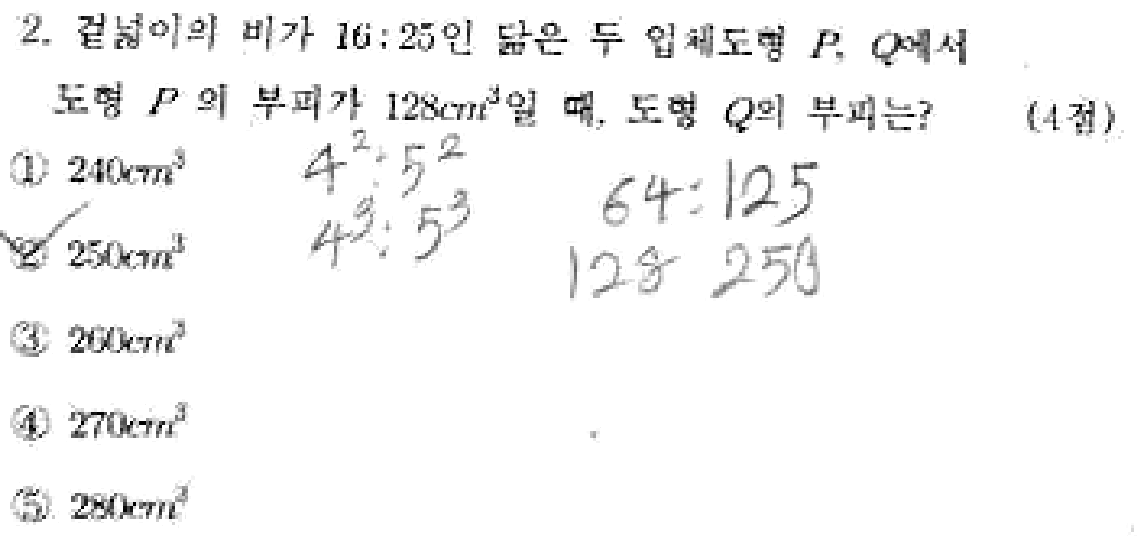 2. 겉넓이의 비가 16:25인 닮은 두 입체도형 P, Q에서
도형 P 의 부피가 128cm³일 때, 도형 Q의 부피는? (4점)
① 240cm³
② 250cm³
③ 260cm³
④ 270cm³
⑤ 280cm³
4²:5²
4³:5³
64:125
128 250